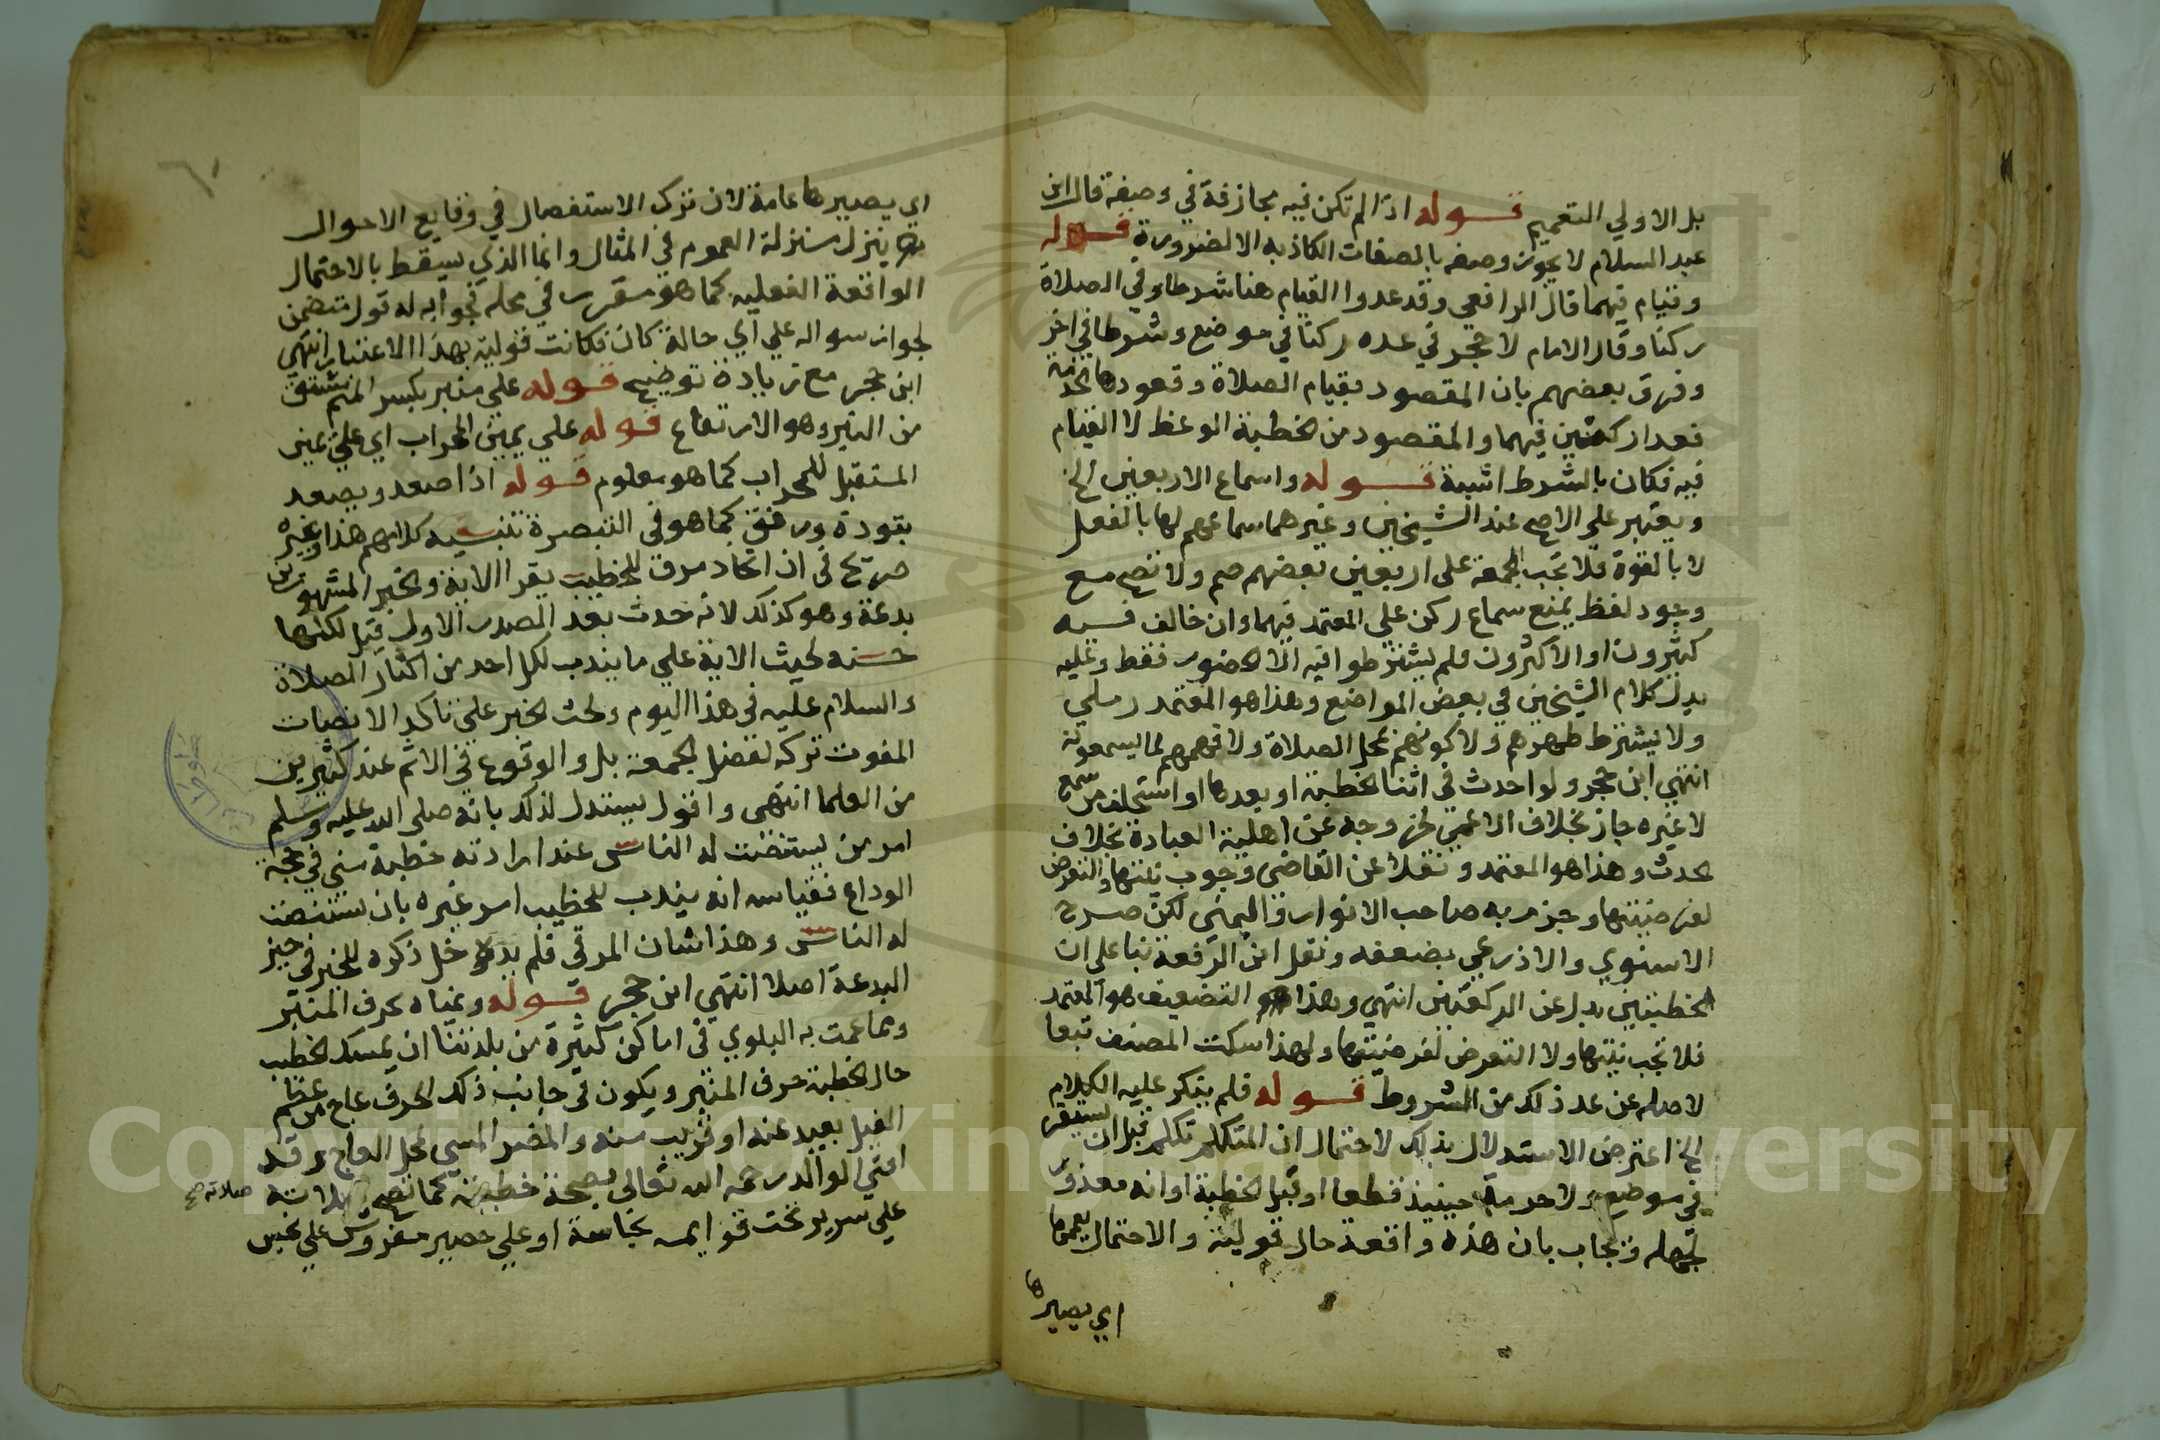 بل الاولي التعميم قوله اذا لم تكن فيه مجازفة في وصفه قال ابن
عبد السلام لا يجوز وصفه بالصفات الكاذبه الا لضرورة قوله
وقيام فيهما قال الرافعي وقد عدوا القيام هنا شرطا وفي الصلاة
ركنا وقال الامام لا حجر في عده ركنا في موضع وشرطا في اخر
وفرق بعضهم بان المقصود بقيام الصلاة وقعودها الخدمة
فعدا ركنين فيهما والمقصود من الخطبة الوعظ لا القيام
فيه فكان بالشرط اشبه قوله واسماع الاربعين الخ
ويعتبر علي الاصح عند الشيخين وغيرهما سماعهم لها بالفعل
لا بالقوة فلا تجب الجمعة علي اربعين بعضهم صم ولا تصح مع
وجود لغط يمنع سماع ركن علي المعتمد فيهما وان خالف فيه
كثيرون او الاكثرون فلم يشترطوا فيه الا الحضور فقط وعليه
يدل كلام الشيخين في بعض المواضع وهذا هو المعتمد رملي
ولا يشترط طهرهم ولا كونهم بمحل الصلاة ولا فهمهم لما يسمعونه
انتهي ابن حجر ولو احدث في اثنا الخطبة او بعدها او استخلف من سمع
لا غيره جاز بخلاف الاغمي لخروجه عن اهلية العبادة بخلاف
المحدث وهذا هو المعتمد ونقلا عن القاضي وجوب نيتها والتعرض
لفرضيتها وجزم به صاحب الانوار واليمني لكن صرح
الاسنوي والاذرعي بضعفه ونقل ابن الرفعة بنا علي ان
الخطبتين بدل عن الركعتين انتهي وهذا التضعيف هو المعتمد
فلا تجب نيتها ولا التعرض لفرضيتها ولهذا سكت المصنف تبعا
لاصله عن عد ذلك من الشروط قوله فلم ينكر عليه الكلام
الخ اعترض الاستدلال بذلك لاحتمال ان المتكلم تكلم قبل ان يستقر
في موضع ولا حرمة حينيذ قطعا او قبل الخطبة او انه معذور
لجهله ويجاب بان هذه واقعة حال قولية والاحتمال يعمها
اي يصيرها
اي يصيرها عامة لان ترك الاستفصال في وقايع الاحوال
ينزل منزلة العموم في المثال وانما الذي يسقط بالاحتمال
الواقعة الفعليه كما هو مقرر في محله فجوابه له قول متضمن
لجواز سواله علي اي حالة كان فكانت قولية بهذا الاعتبار انتهي
ابن حجر مع زيادة توضيح قوله علي منبر بكسر الميم مشتق
من النبر وهو الارتفاع قوله علي يمين المحراب اي علي يمين
المستقبل للمحراب كما هو معلوم قوله اذا صعد ويصعد
بتودة ورفق كما هو في التبصرة تنبيه كلامهم هذا وغيره
صريح في ان اتخاذ مرق للخطيب يقرا الاية والخبر المشهورين
بدعة وهو كذلك لانه حدث بعد الصدر الاول قيل لكنها
حسنه لحيث الاية علي ما يندب لكل احد من اكثار الصلاة
والسلام عليه في هذا اليوم ولحث الخبر علي تاكد الانصات
المفوت تركه لفضل الجمعة بل والوقوع في الاثم عند كثيرين
من العلما انتهي واقول يستدل لذلك بانه صلي الله عليه وسلم
امر من يستنصت له الناس عند ارادته خطبة مني في حجة
الوداع فقياسه انه يندب للخطيب امر غيره بان يستنصت
له الناس وهذا شان المرقي فلم يدخل ذكره للخبر في حيز
البدعة اصلا انتهي ابن حجر قوله ويمناه بحرف المنبر
ومما عمت به البلوي في اماكن كثيرة من بلدتنا ان يمسك الخطيب
حال الخطبة حرف المنبر ويكون في جانب ذلك الحرف عاج من عظم
الفيل بعيد عنه او قريب منه والمضر المس لمحل العاج وقد
افتي الوالد رحمه الله تعالي بصحة خطبته كما تصح صلاته
صلاته صح
علي سرير تحت قوايمه نجاسة او علي حصير مفروش علي نجس